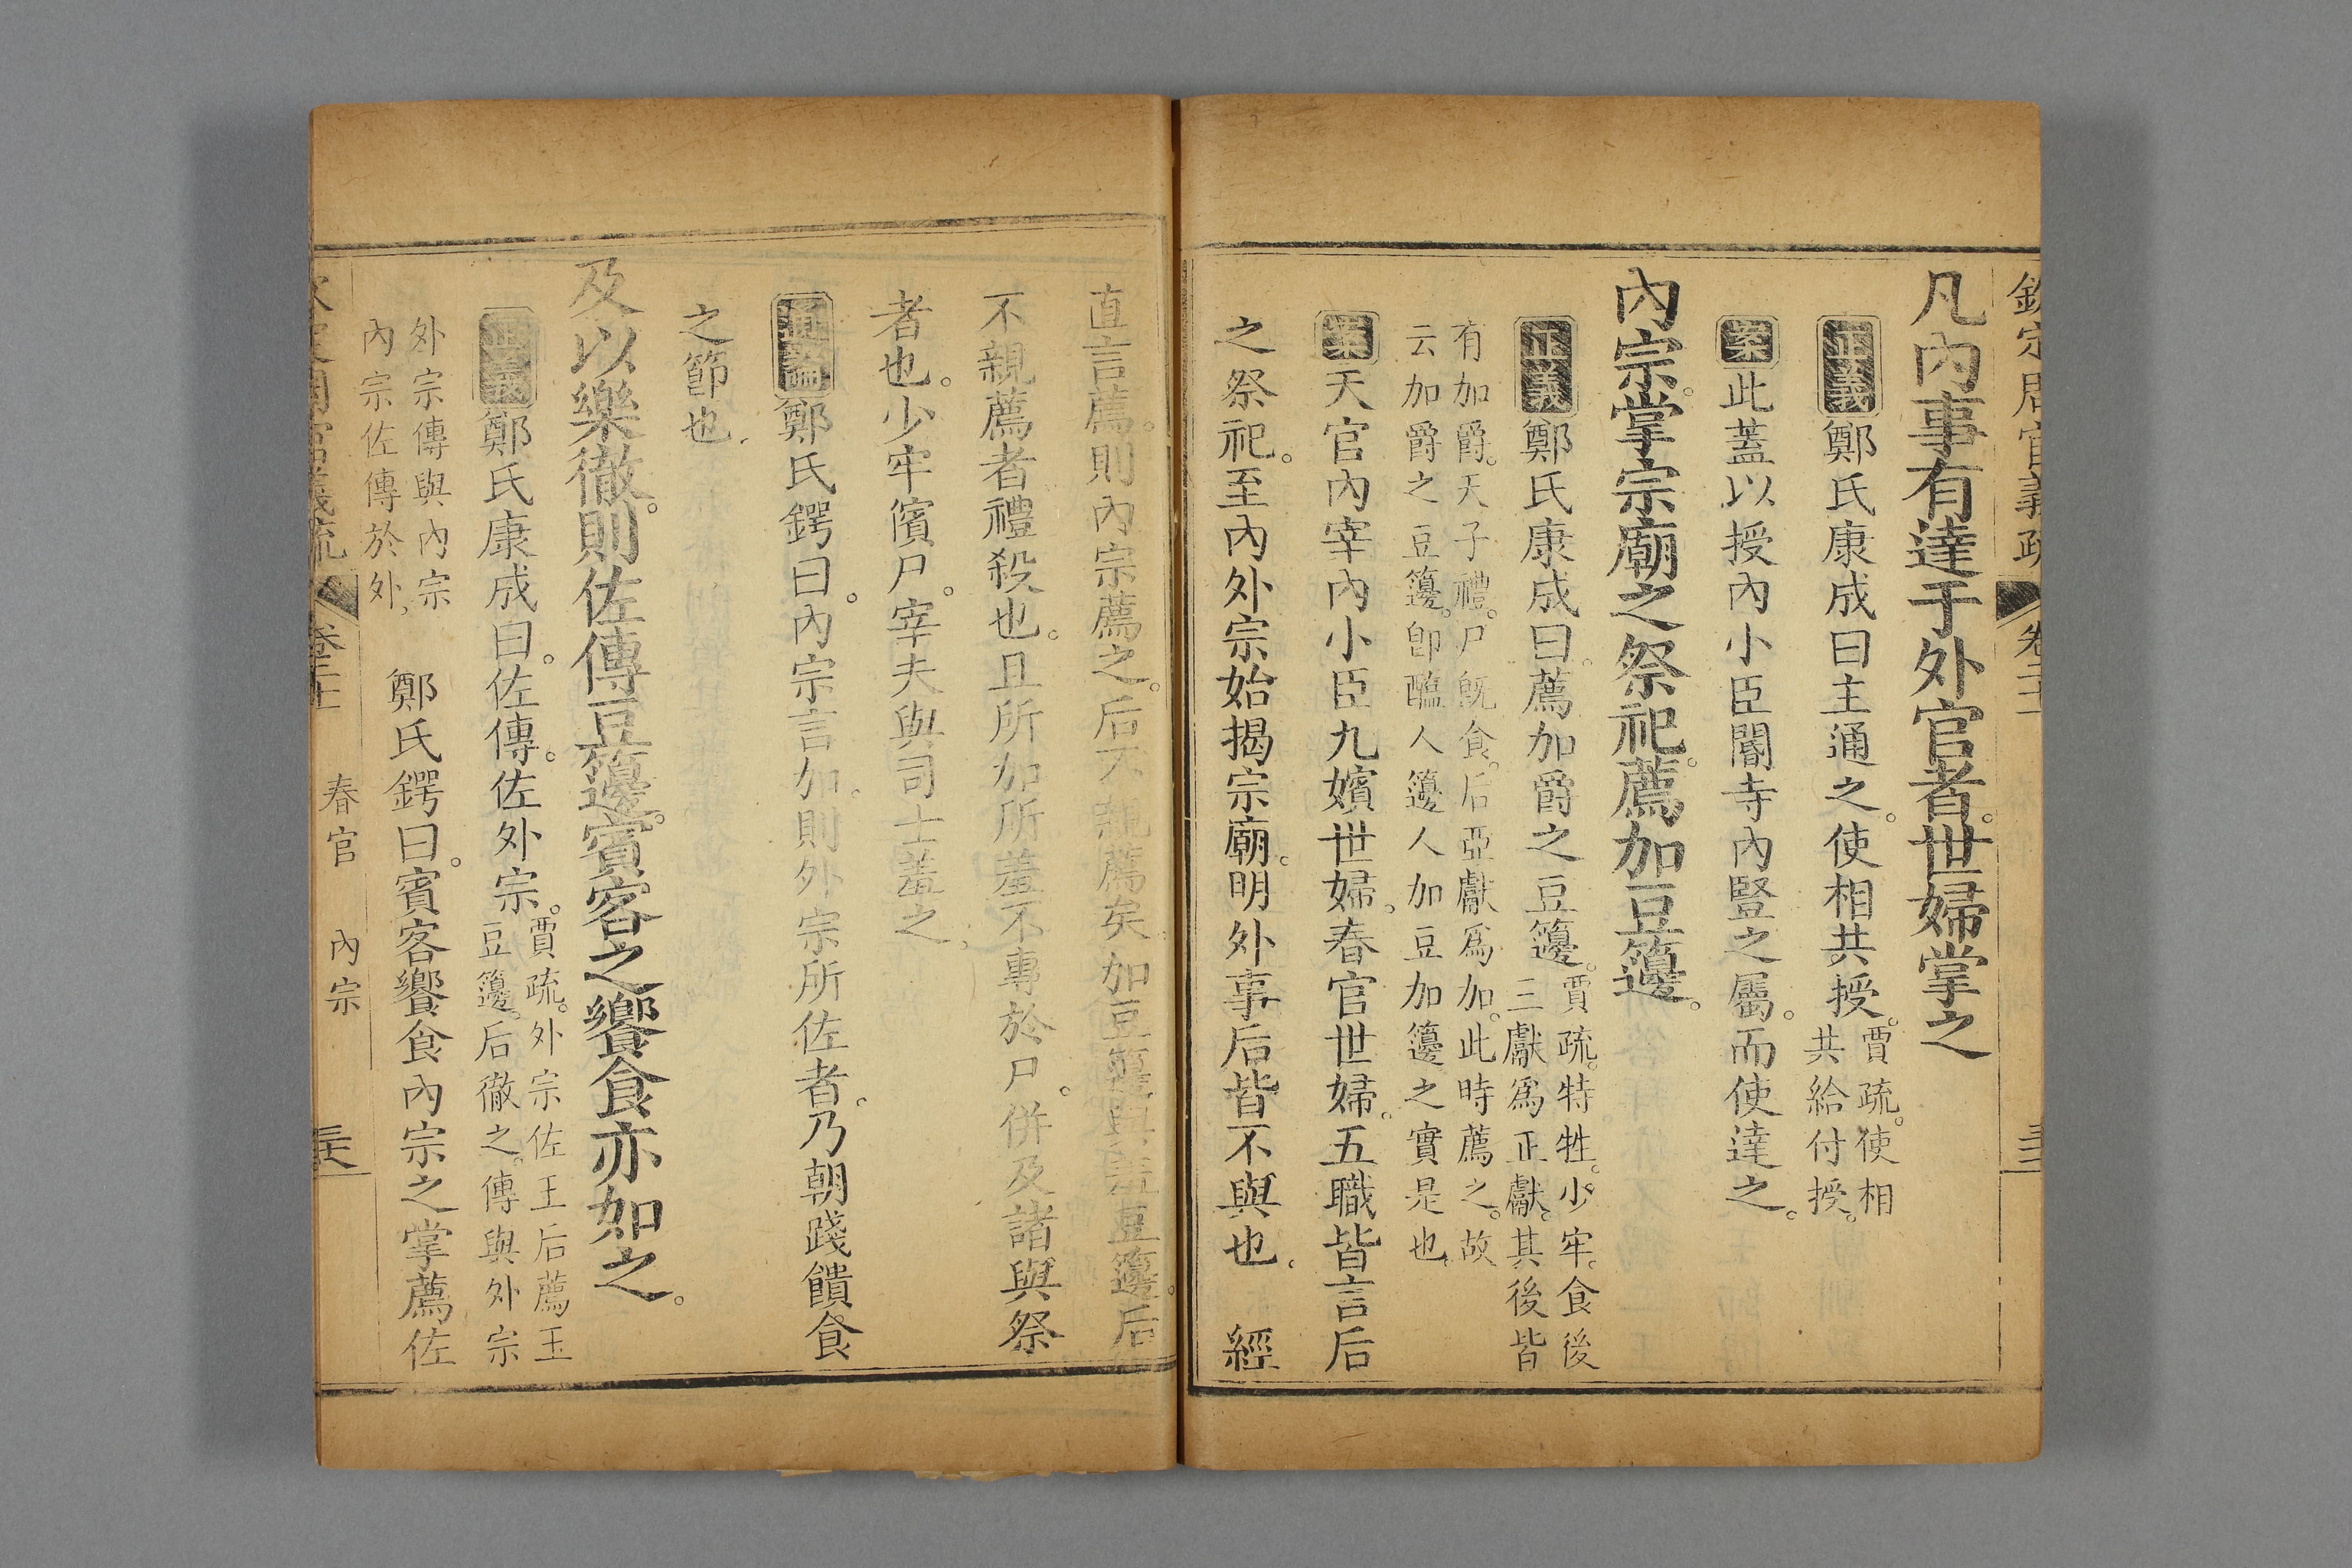 欽定周官義疏 卷二十
凡內事有達于外官者。世婦掌之
正義鄭氏康成曰主通之。使相共授。賈疏。使相
共給付授。
案此蓋以授內小臣閽寺內豎之屬。而使達之。
內宗。掌宗廟之祭祀。薦加豆籩。
正義鄭氏康成曰。薦加爵之豆籩。賈疏。特牲。少牢。食後
三獻爲正獻。其後皆
有加爵。天子禮。尸旣食。后亞獻爲加。此時薦之。故
云加爵之豆籩。卽醢人籩人加豆加籩之實是也。
案天官內宰內小臣九嬪世婦。春官世婦。五職皆言后
之祭祀。至內外宗始揭宗廟。明外事后皆不與也。 經
直言薦。則內宗薦之。后不親薦矣。加豆籩與羞豆籩。后
不親薦者禮殺也。且所加所羞不專於尸。併及諸與祭
者也。少牢儐尸。宰夫與司士羞之。
通論鄭氏鍔曰。內宗言加。則外宗所佐者。乃朝踐饋食
之節也。
及以樂徹。則佐傳豆籩。賓客之饗食亦如之。
正義鄭氏康成曰。佐傳。佐外宗。賈疏。外宗佐王后薦玉
豆籩。后徹之。傳與外宗
外宗傳與內宗
內宗佐傳於外。 鄭氏鍔曰。賓客饗食內宗之掌薦佐
欽定周官義疏 卷二十 春官 內宗